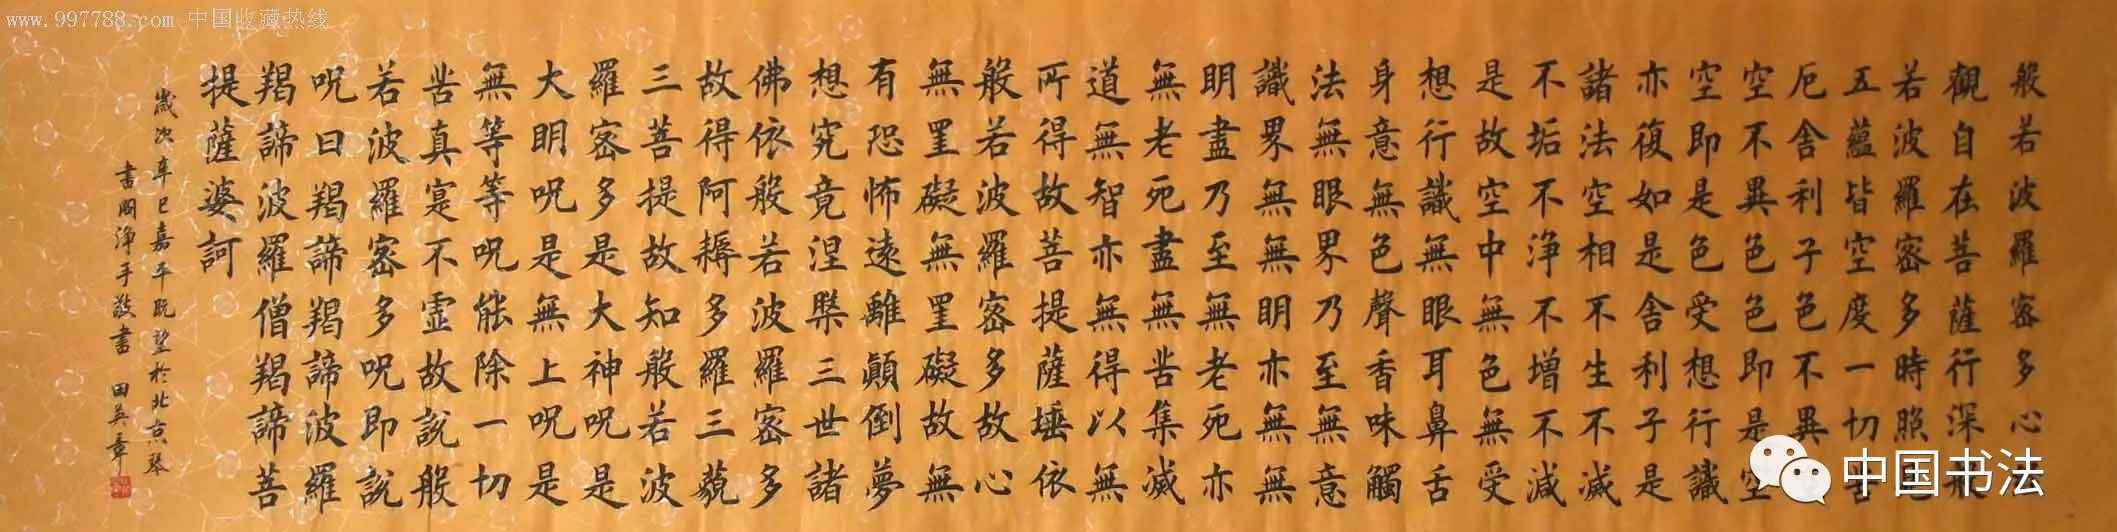 www.997788.com 中国收藏热线
般若波羅密多心
觀自在菩薩行深
若波羅密多時照
五蘊皆空度一切苦
厄舍利子色不異
空不異色色即是空
空即是色受想行識
亦復如是舍利子是
諸法空相不生不滅
不垢不淨不增不減
是故空中無色無受
想行識無眼耳鼻舌
身意無色聲香味觸
法無眼界乃至無意
識界無無明亦無無
明盡乃至無老死亦
無老死盡無苦集滅
道無智亦無得以無
所得故菩提薩埵依
般若波羅密多故心
無罣礙無罣礙故無
有恐怖遠離顛倒夢
想究竟涅槃三世諸
佛依般若波羅密多
故得阿耨多羅三藐
三菩提故知般若波
羅密多是大神呪是
大明呪是無上呪是
無等等呪能除一切
苦真實不虛故說般
若波羅密多呪即說
呪曰羯諦羯諦波羅
羯諦波羅僧羯諦菩
提薩婆訶
歲次辛巳嘉平既望於北京琴
書閣淨手敬書 田英章
中国书法